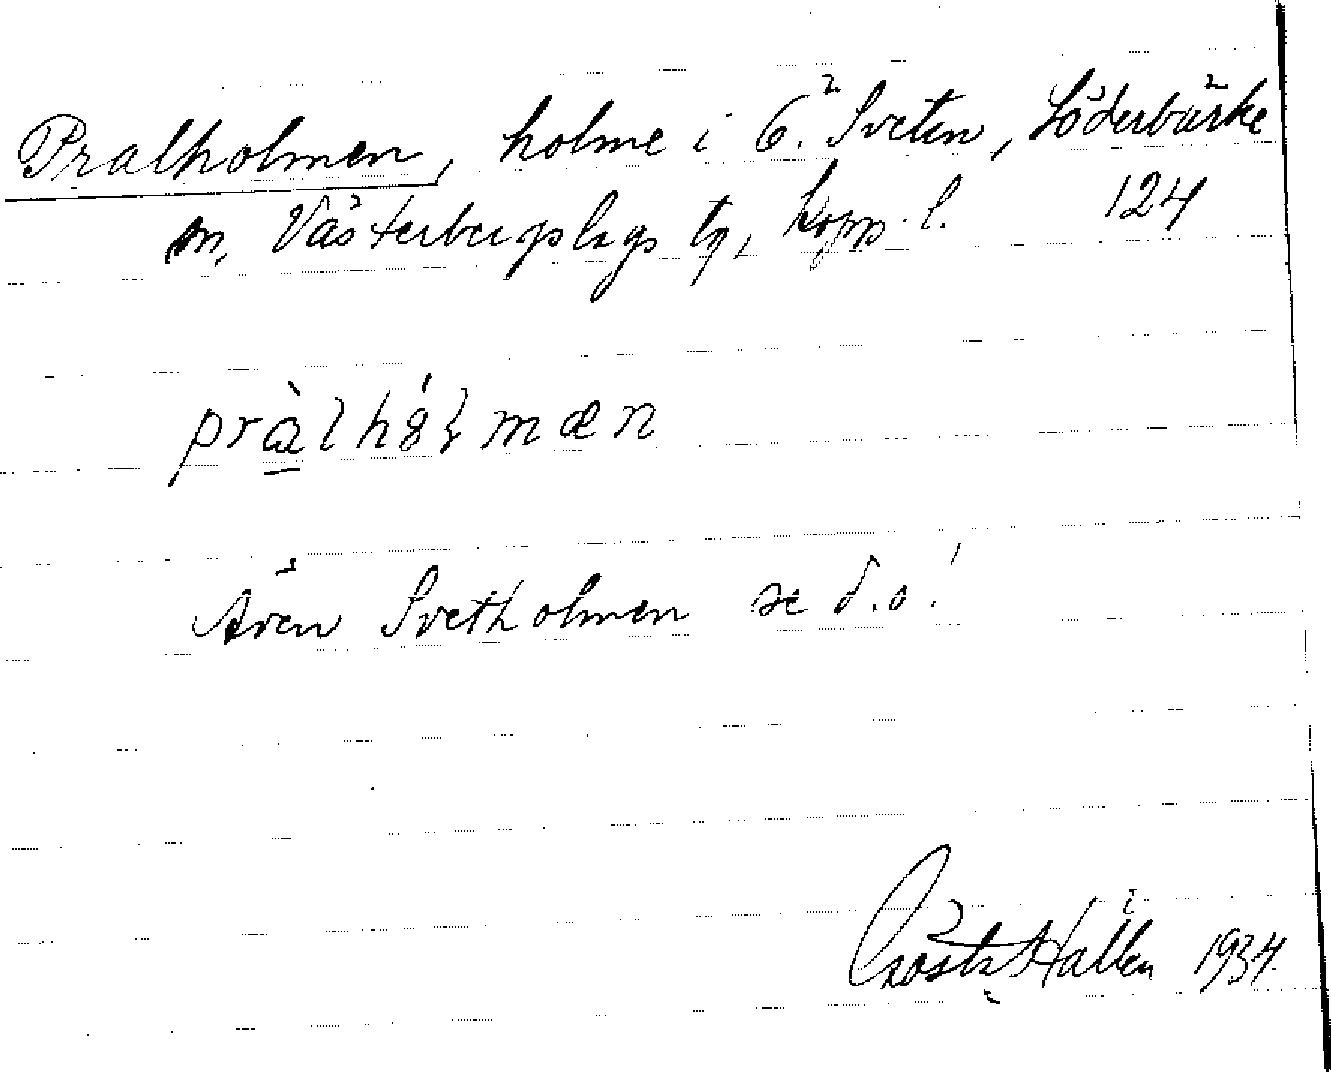 Pralholmen, holme i Ö. Sveten, Söderbärke
sn, Västerbergslags tg, Kopp. l. 124
pràlhólmæn
Även Svetholmen se d.o!
Gösta Hallén 1934.